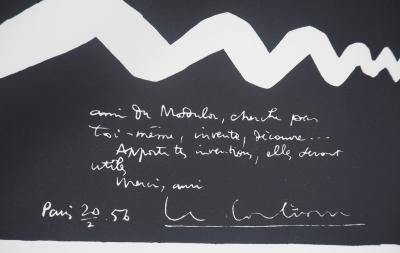 ami du Modulor, cherche par
toi-même, invente, découvre...
Apporte tes inventions, elles seront
utiles
Merci, ami
Paris 20/2.56
Le Corbusier